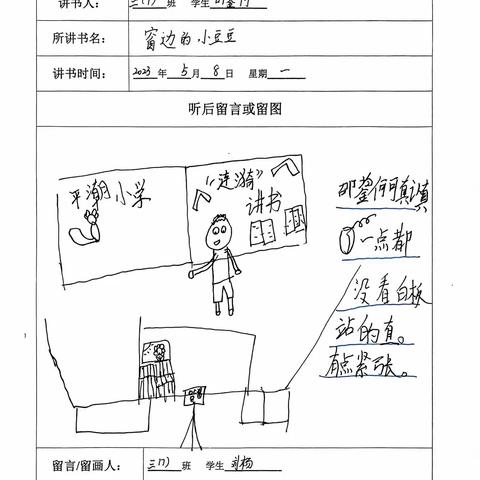 讲书人： 三(7) 班 学生
所讲书名： 窗边的小豆豆
讲书时间： 2023 年 5 月 8 日 星期 一
听后留言或留图
平潮小学
“涟漪”
讲书
何真
一点都
没看白板
站的直。
有点紧张。
留言/留画人： 三(7) 班 学生 刘杨